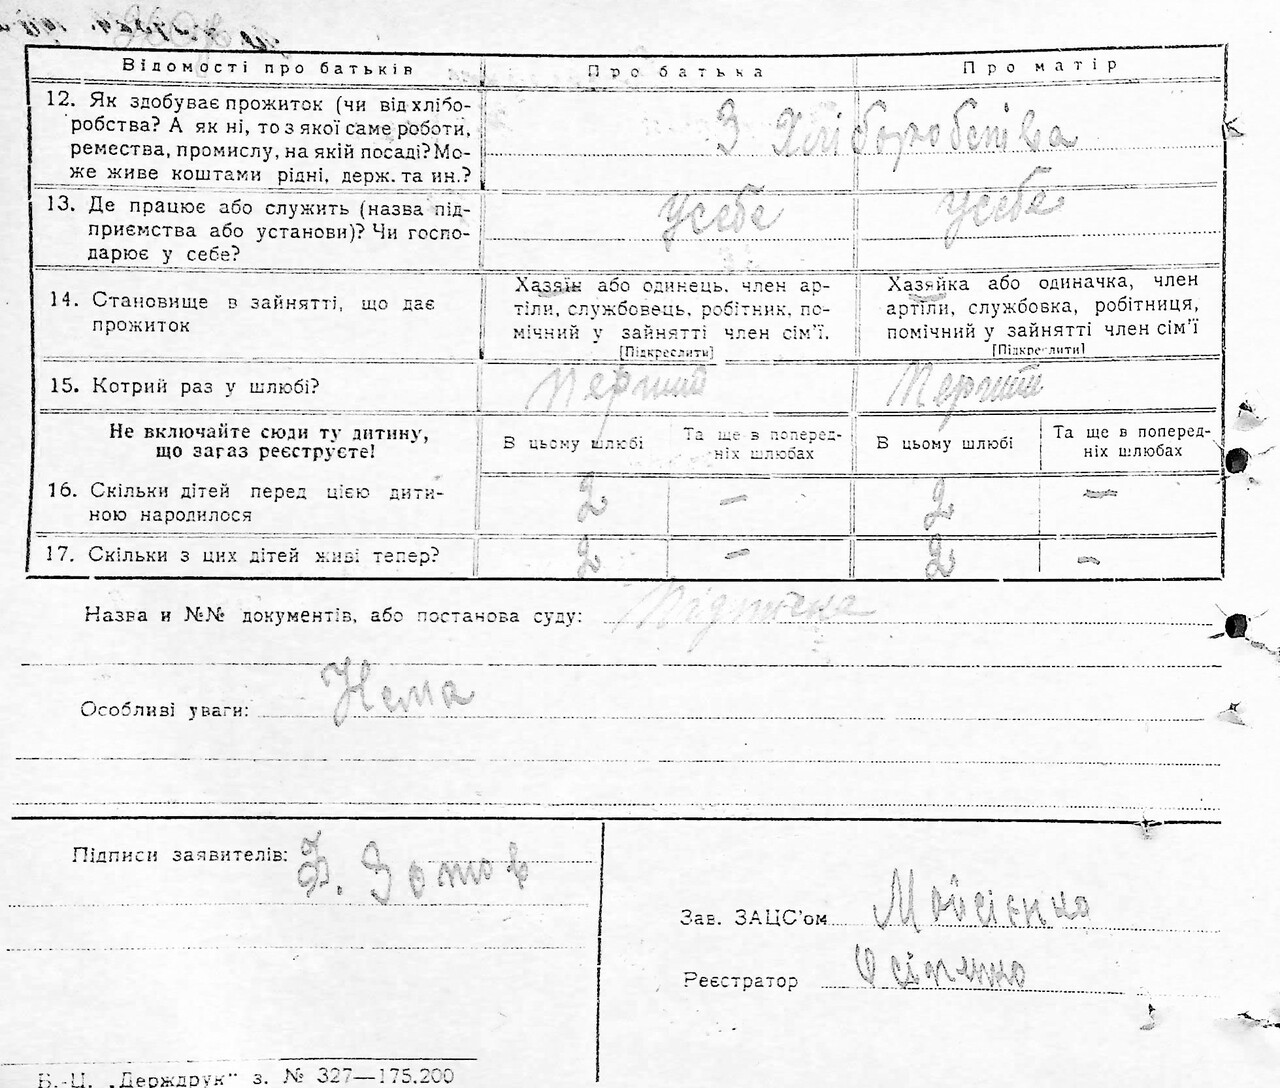 Відомості про батьків Про батька Про матір
12. Як здобуває прожиток (чи від хлібо-
робства? А як ні, то з якої саме роботи,
ремества, промислу, на якій посаді? Мо-
же живе коштами рідні, держ. та ин.?
З Хліборобства
13. Де працює або служить (назва під-
приємства або установи)? Чи госпо-
дарює у себе?
усебе усебе
14. Становище в зайнятті, що дає
прожиток
Хазяїн або одинець, член ар-
тіли, службовець, робітник, по-
мічний у зайнятті член сім'ї.
[Підкреслити]
Хазяйка або одиначка, член
артіли, службовка, робітниця,
помічний у зайнятті член сім'ї
[Підкреслити]
15. Котрий раз у шлюбі? Перший Перший
Не включайте сюди ту дитину,
що загаз реєструєте!
В цьому шлюбі
Та ще в поперед-
ніх шлюбах
В цьому шлюбі
Та ще в поперед-
ніх шлюбах
16. Скільки дітей перед цією дити-
ною народилося
2 — 2 —
17. Скільки з цих дітей живі тепер? 2 — 2 —
Назва и №№ документів, або постанова суду:
Особливі уваги: Нема
Підписи заявителів: Ф. Зотов
Зав. ЗАЦС'ом Мойсієнко
Реєстратор
Б.-Ц. „Держдрук" з. № 327—175.200